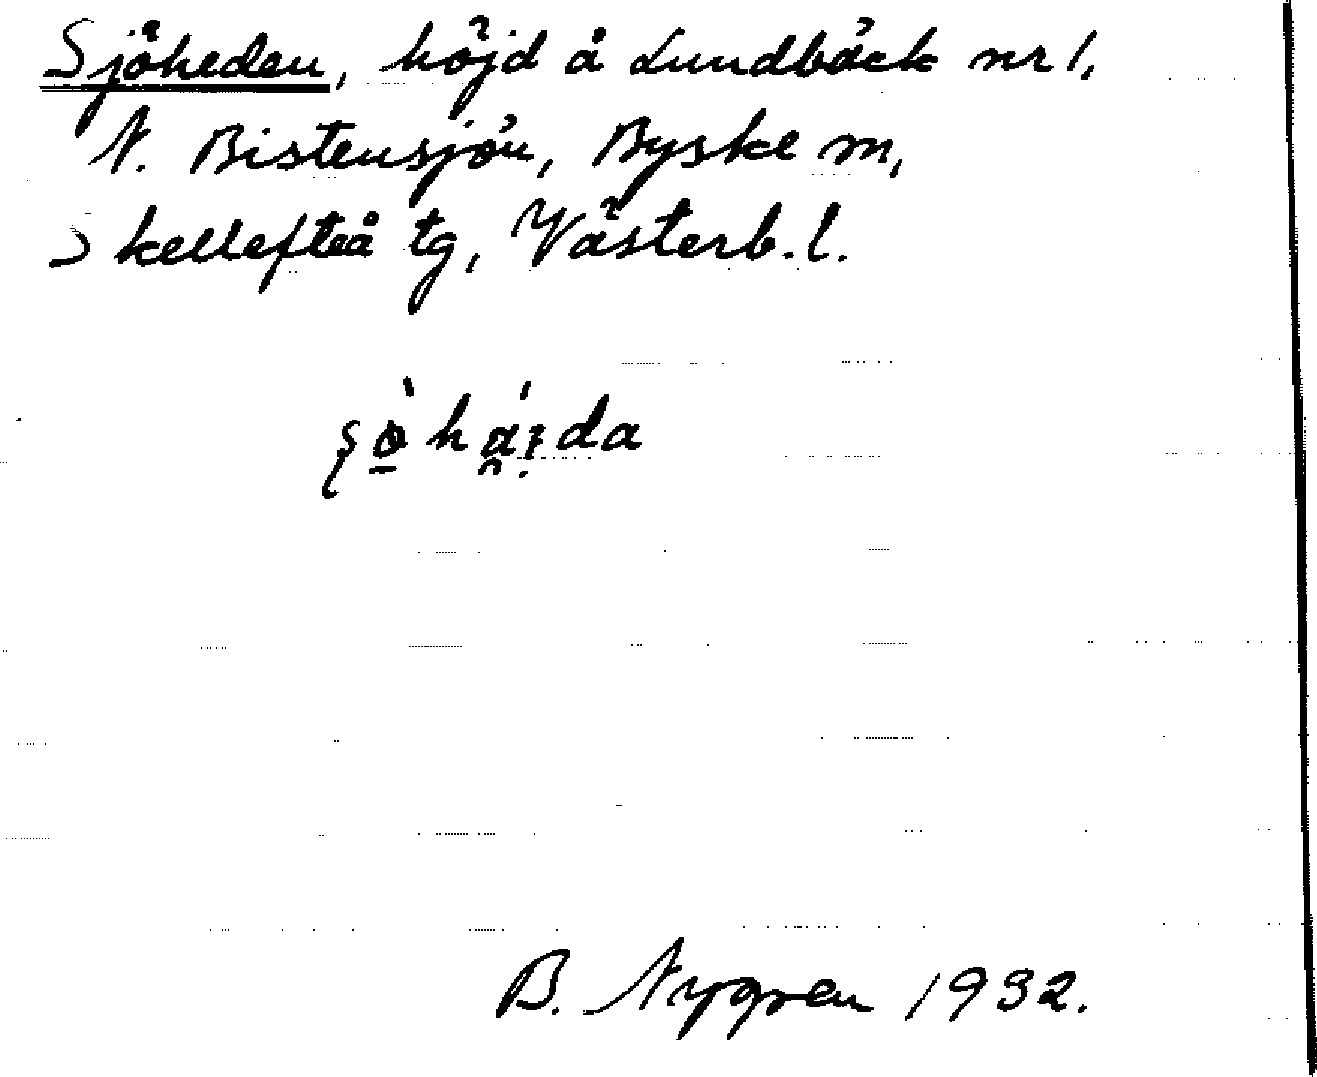 Sjöheden, höjd å Lundbäck nr 1,
N. Bistensjön, Byske sn,
Skellefteå tg, Västerb. l.
B. Nygren 1932.